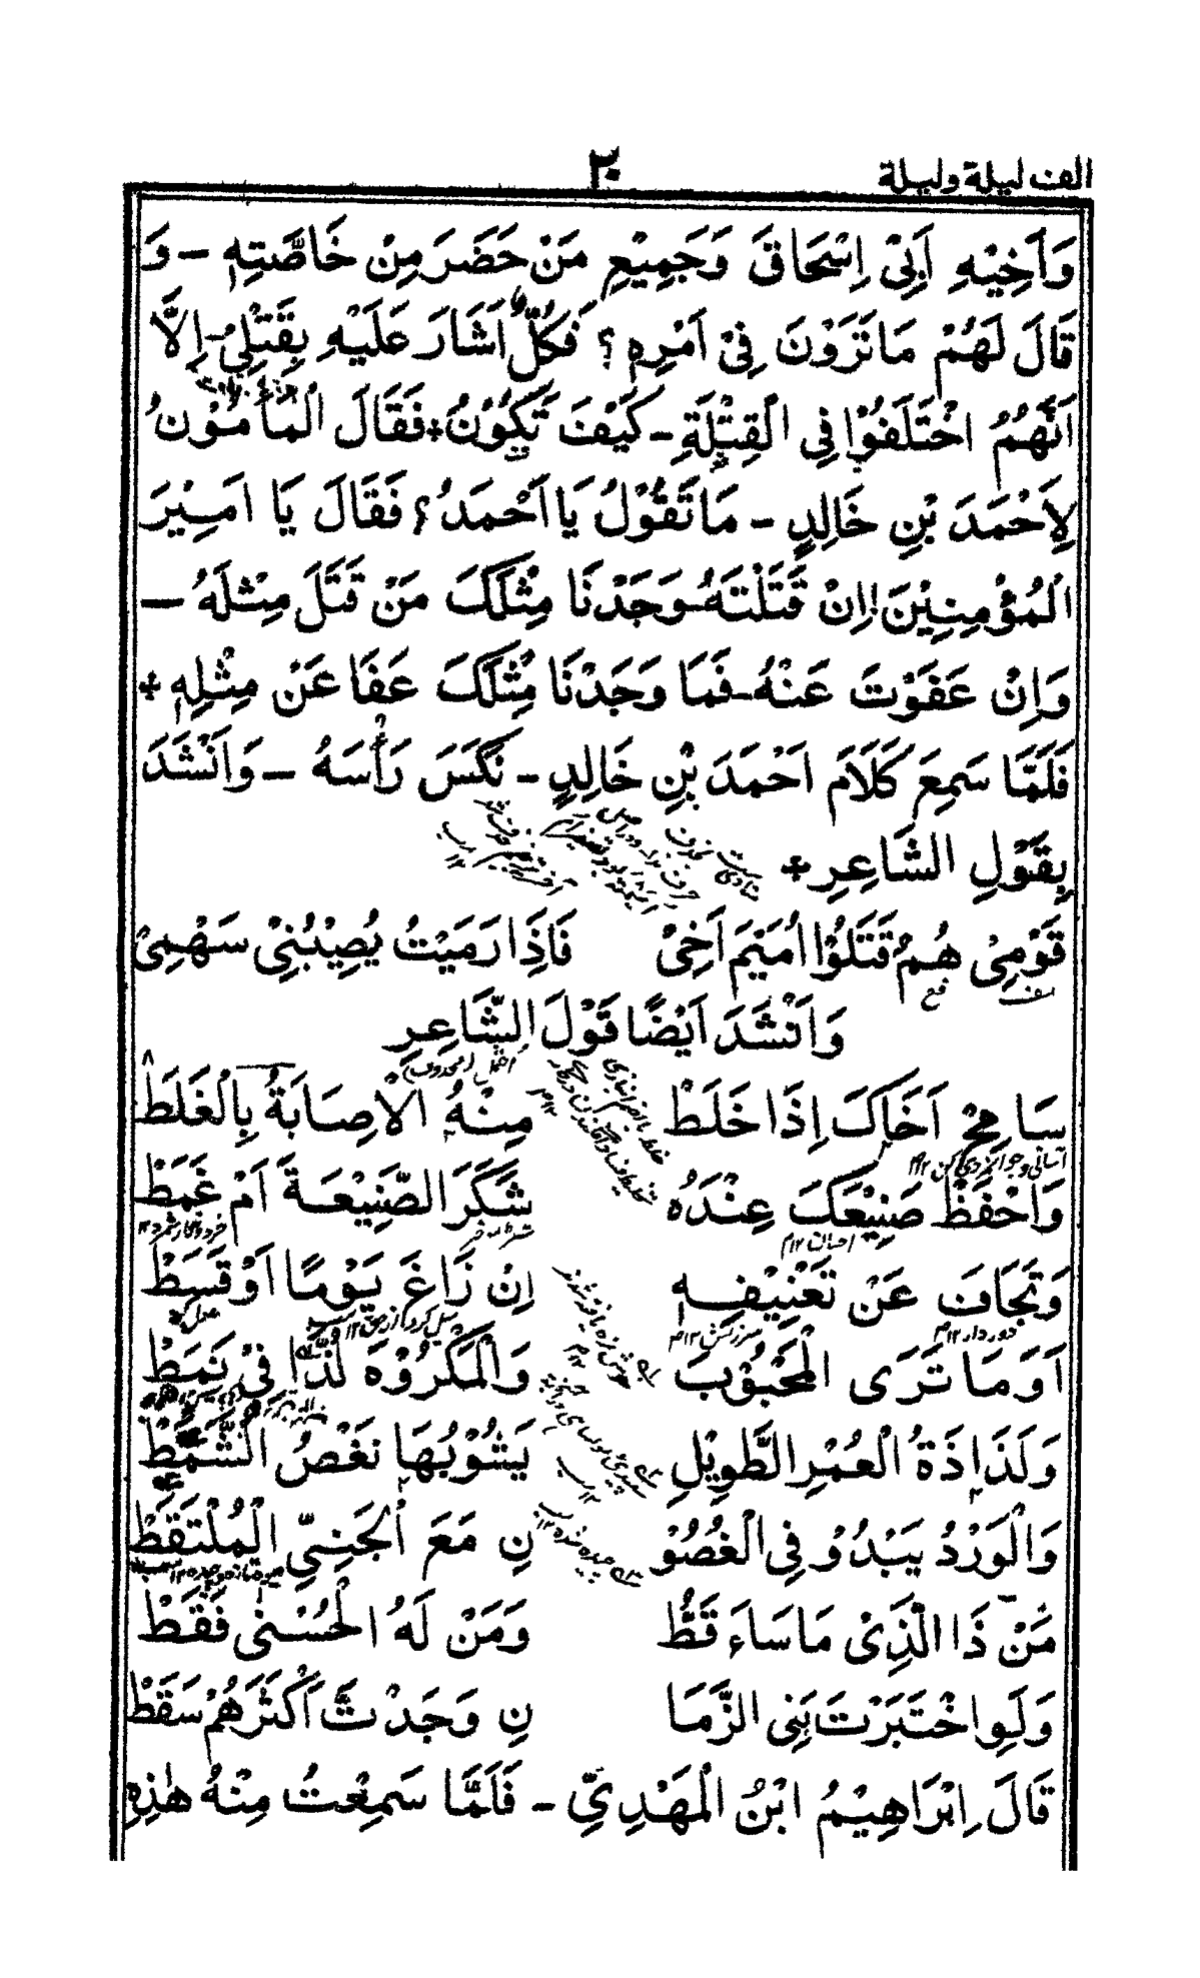 الف ليلة وليلة
٢٠
وَاَخِيْهِ اَبِيْ اِسْحَاقَ وَجَمِيْعِ مَنْ حَضَرَ مِنْ خَاصَّتِهٖ - وَ
قَالَ لَهُمْ مَا تَرَوْنَ فِيْ اَمْرِهٖ ؟ فَكُلٌّ اَشَارَ عَلَيْهِ بِقَتْلِيْ - اِلَّا
اَنَّهُمُ اخْتَلَفُوْا فِي الْقِتْلَةِ - كَيْفَ تَكُوْنُ * فَقَالَ الْمَأْمُوْنُ
لِاَحْمَدَ بْنِ خَالِدٍ - مَا تَقُوْلُ يَا اَحْمَدُ ؟ فَقَالَ يَا اَمِيْرَ
الْمُؤْمِنِيْنَ ! اِنْ قَتَلْتَهُ - وَجَدْنَا مِثْلَكَ مَنْ قَتَلَ مِثْلَهُ -
وَاِنْ عَفَوْتَ عَنْهُ - فَمَا وَجَدْنَا مِثْلَكَ عَفَا عَنْ مِثْلِهٖ *
فَلَمَّا سَمِعَ كَلَامَ اَحْمَدَ بْنِ خَالِدٍ - نَكَسَ رَأْسَهُ - وَاَنْشَدَ
بِقَوْلِ الشَّاعِرِ *
قَوْمِيْ هُمْ قَتَلُوْا اُمَيْمَ اَخِيْ فَاِذَا رَمَيْتُ يُصِيْبُنِيْ سَهْمِيْ
وَاَنْشَدَ اَيْضًا قَوْلَ الشَّاعِرِ
سَامِحْ اَخَاكَ اِذَا خَلَطْ مِنْهُ الْاِصَابَةُ بِالْغَلَطْ
آسانی وجوانمردی کن ١٢م
وَاحْفَظْ صَنِيْعَكَ عِنْدَهُ شَكَرَ الصَّنِيْعَةَ اَمْ غَمَطْ
احسان ١٢م
وَتَجَافَ عَنْ تَعْنِيْفِهٖ اِنْ زَاغَ يَوْمًا اَوْ قَسَطْ
دور دار ١٢م سرزنش ١٢م
اَوَ مَا تَرَى الْمَحْبُوْبَ وَالْمَكْرُوْهَ لُذَّا فِيْ نَمَطْ
وَلَذَاذَةُ الْعُمْرِ الطَّوِيْلِ يَشُوْبُهَا نَغْصُ الشَّمَطْ
وَالْوَرْدُ يَبْدُوْ فِي الْغُصُوْ نِ مَعَ الْجَنِيِّ الْمُلْتَقَطْ
مَنْ ذَا الَّذِيْ مَا سَاءَ قَطُّ وَمَنْ لَهُ الْحُسْنٰى فَقَطْ
وَلَوِ اخْتَبَرْتَ بَنِي الزَّمَا نِ وَجَدْتَّ اَكْثَرَهُمْ سَقَطْ
قَالَ اِبْرَاهِيْمُ ابْنُ الْمَهْدِيِّ - فَلَمَّا سَمِعْتُ مِنْهُ هٰذِهِ